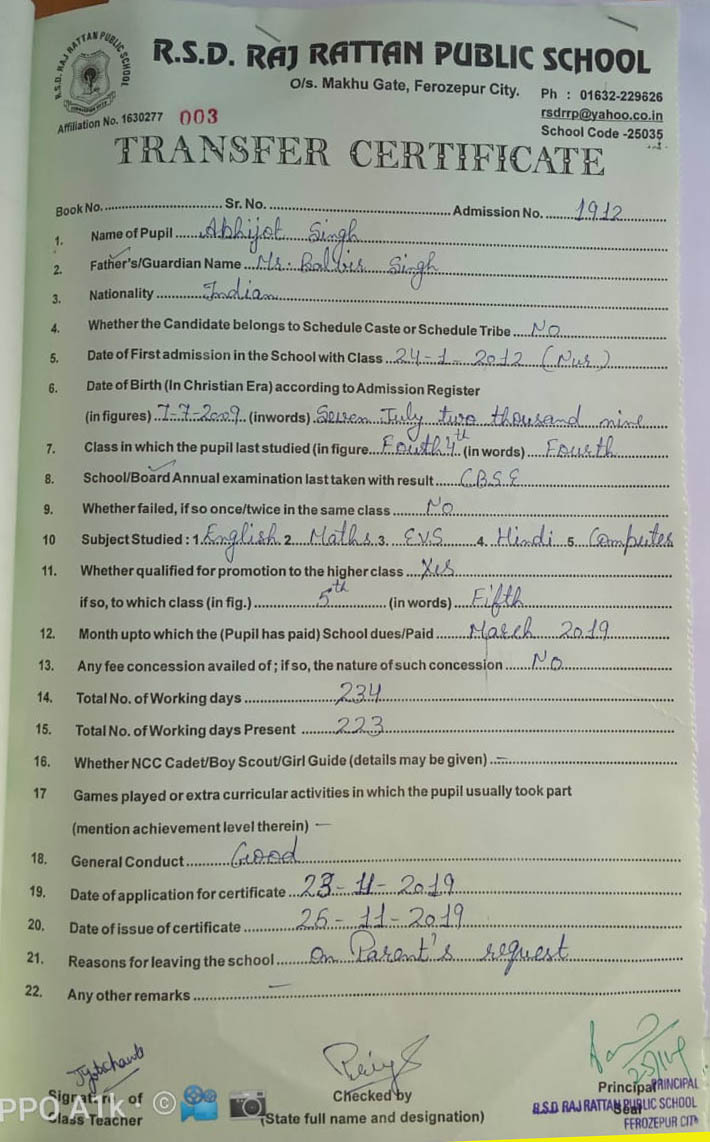 R.S.D. RAJ RATTAN PUBLIC SCHOOL
R.S.D. RAJ RATTAN PUBLIC SCHOOL
O/s. Makhu Gate, Ferozepur City.
Ph : 01632-229626
rsdrrp@yahoo.co.in
School Code -25035
Affiliation No. 1630277 003
TRANSFER CERTIFICATE
Book No. Sr. No. Admission No. 1912
1. Name of Pupil Abhijot Singh
2. Father's/Guardian Name Mr. Balbir Singh
3. Nationality Indian
4. Whether the Candidate belongs to Schedule Caste or Schedule Tribe No
5. Date of First admission in the School with Class 24-1-2012 (Nur)
6. Date of Birth (In Christian Era) according to Admission Register
(in figures) 7-7-2009 (inwords) Seven July two thousand nine
7. Class in which the pupil last studied (in figure Fourth 4th (in words) Fourth
8. School/Board Annual examination last taken with result CBSE
9. Whether failed, if so once/twice in the same class No
10 Subject Studied : 1. English 2. Maths 3. EVS 4. Hindi 5. Computer
11. Whether qualified for promotion to the higher class Yes
if so, to which class (in fig.) 5th (in words) Fifth
12. Month upto which the (Pupil has paid) School dues/Paid March 2019
13. Any fee concession availed of ; if so, the nature of such concession No
14. Total No. of Working days 234
15. Total No. of Working days Present 223
16. Whether NCC Cadet/Boy Scout/Girl Guide (details may be given) -
17 Games played or extra curricular activities in which the pupil usually took part
(mention achievement level therein) -
18. General Conduct Good
19. Date of application for certificate 23-11-2019
20. Date of issue of certificate 25-11-2019
21. Reasons for leaving the school On Parent's request
22. Any other remarks -
Signature of
Class Teacher
Checked by
(State full name and designation)
Principal
Seal
PRINCIPAL
R.S.D. RAJ RATTAN PUBLIC SCHOOL
FEROZEPUR CITY